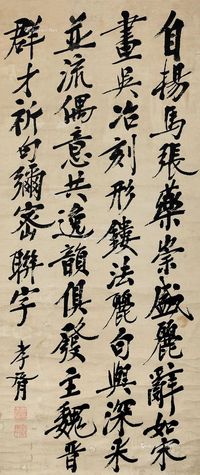 自揚馬張蔡崇盛麗辭如宋
畫吳冶刻形鏤法麗句與深采
並流偶意共逸韻俱發主魏晉
群才祈句彌密聯字
李